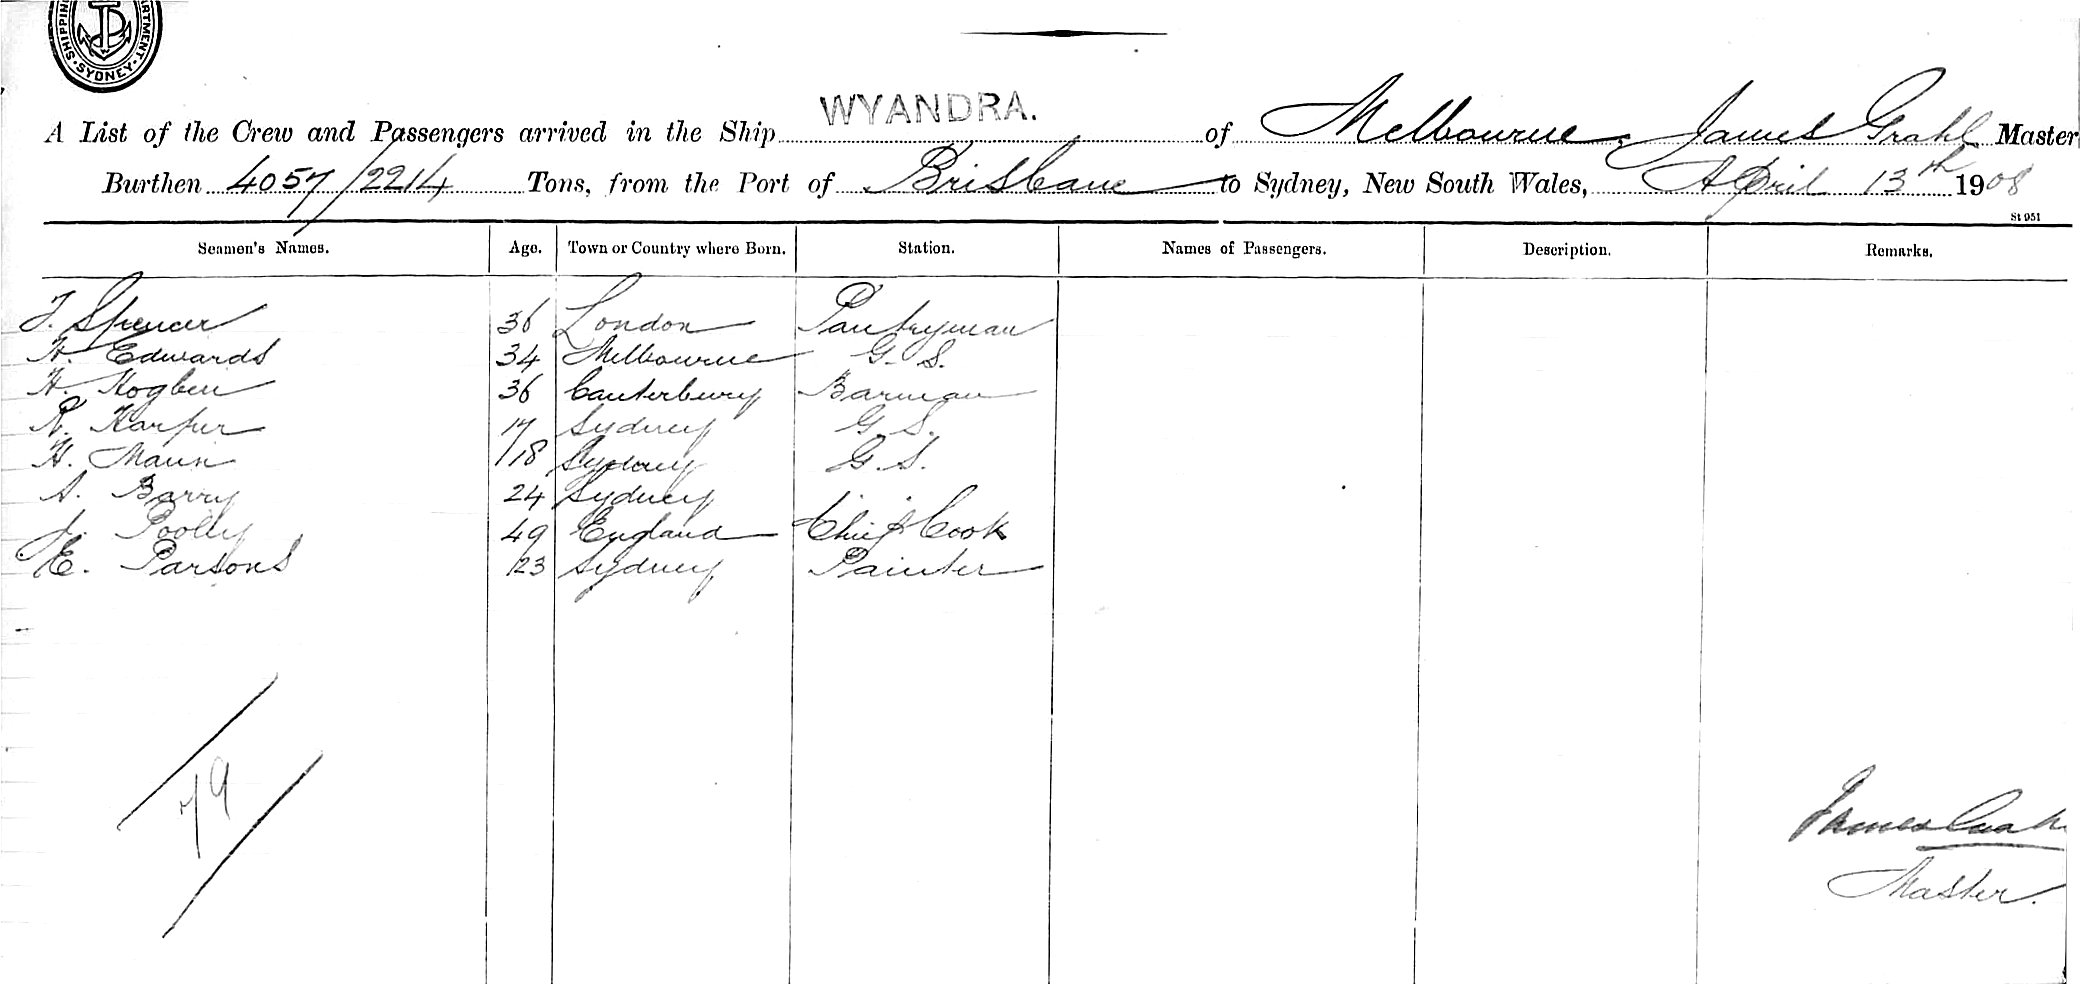 SHIPPING DEPARTMENT SYDNEY
WYANDRA.
A List of the Crew and Passengers arrived in the Ship WYANDRA. of Melbourne, James Grahl Master
Burthen 4057/2214 Tons, from the Port of Brisbane to Sydney, New South Wales, April 13th 1908
St 951
Seamen's Names. Age. Town or Country where Born. Station. Names of Passengers. Description. Remarks.
Spencer 36 London Pantryman
H. Edwards 34 Melbourne G. S.
H. Hogben 36 Canterbury Barman
R. Harper 17 Sydney G. S.
H. Mann 18 Sydney G. S.
A. Barry 24 Sydney
J. Poolly 49 England Chief Cook
E. Parsons 23 Sydney Painter
79
James Grahl
Master.